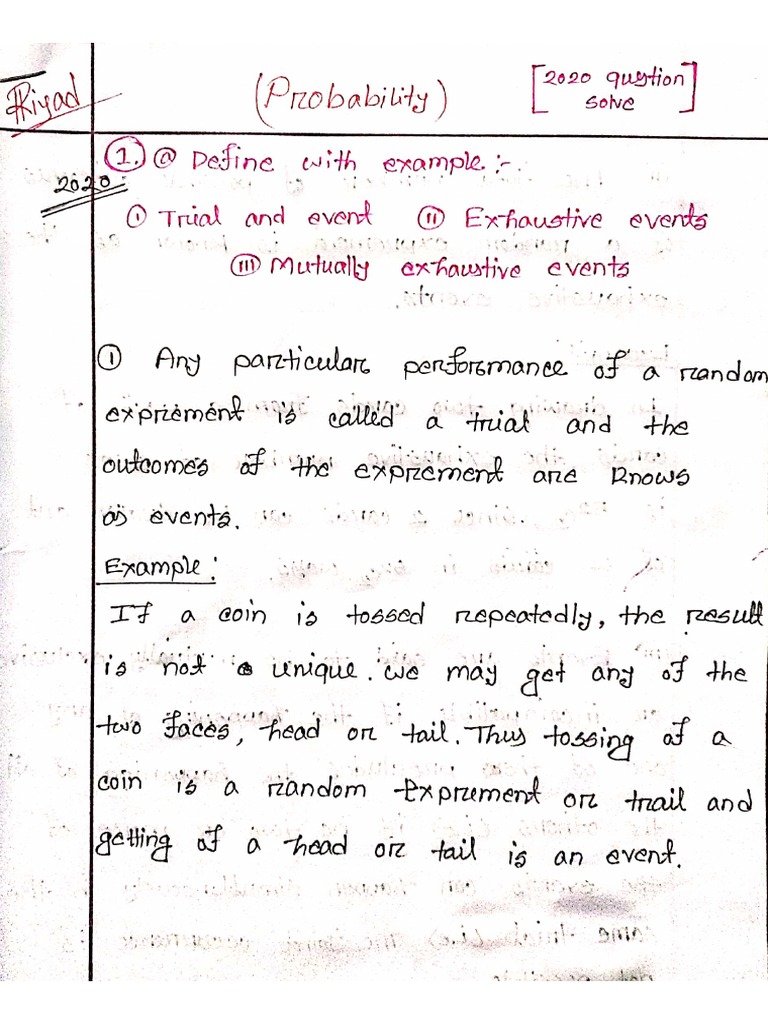 Riyad
(Probability)
[2020 question
solve]
2020:
1. ⓐ Define with example:-
ⓘ Trial and event ⓘⓘ Exhaustive events
ⓘⓘⓘ Mutually exhaustive events
ⓘ Any particular performance of a random
expriement is called a trial and the
outcomes of the expriement are knows
as events.
Example:
If a coin is tossed repeatedly, the result
is not unique. we may get any of the
two faces, head or tail. Thus tossing of a
coin is a random Expriement or trail and
getting of a head or tail is an event.